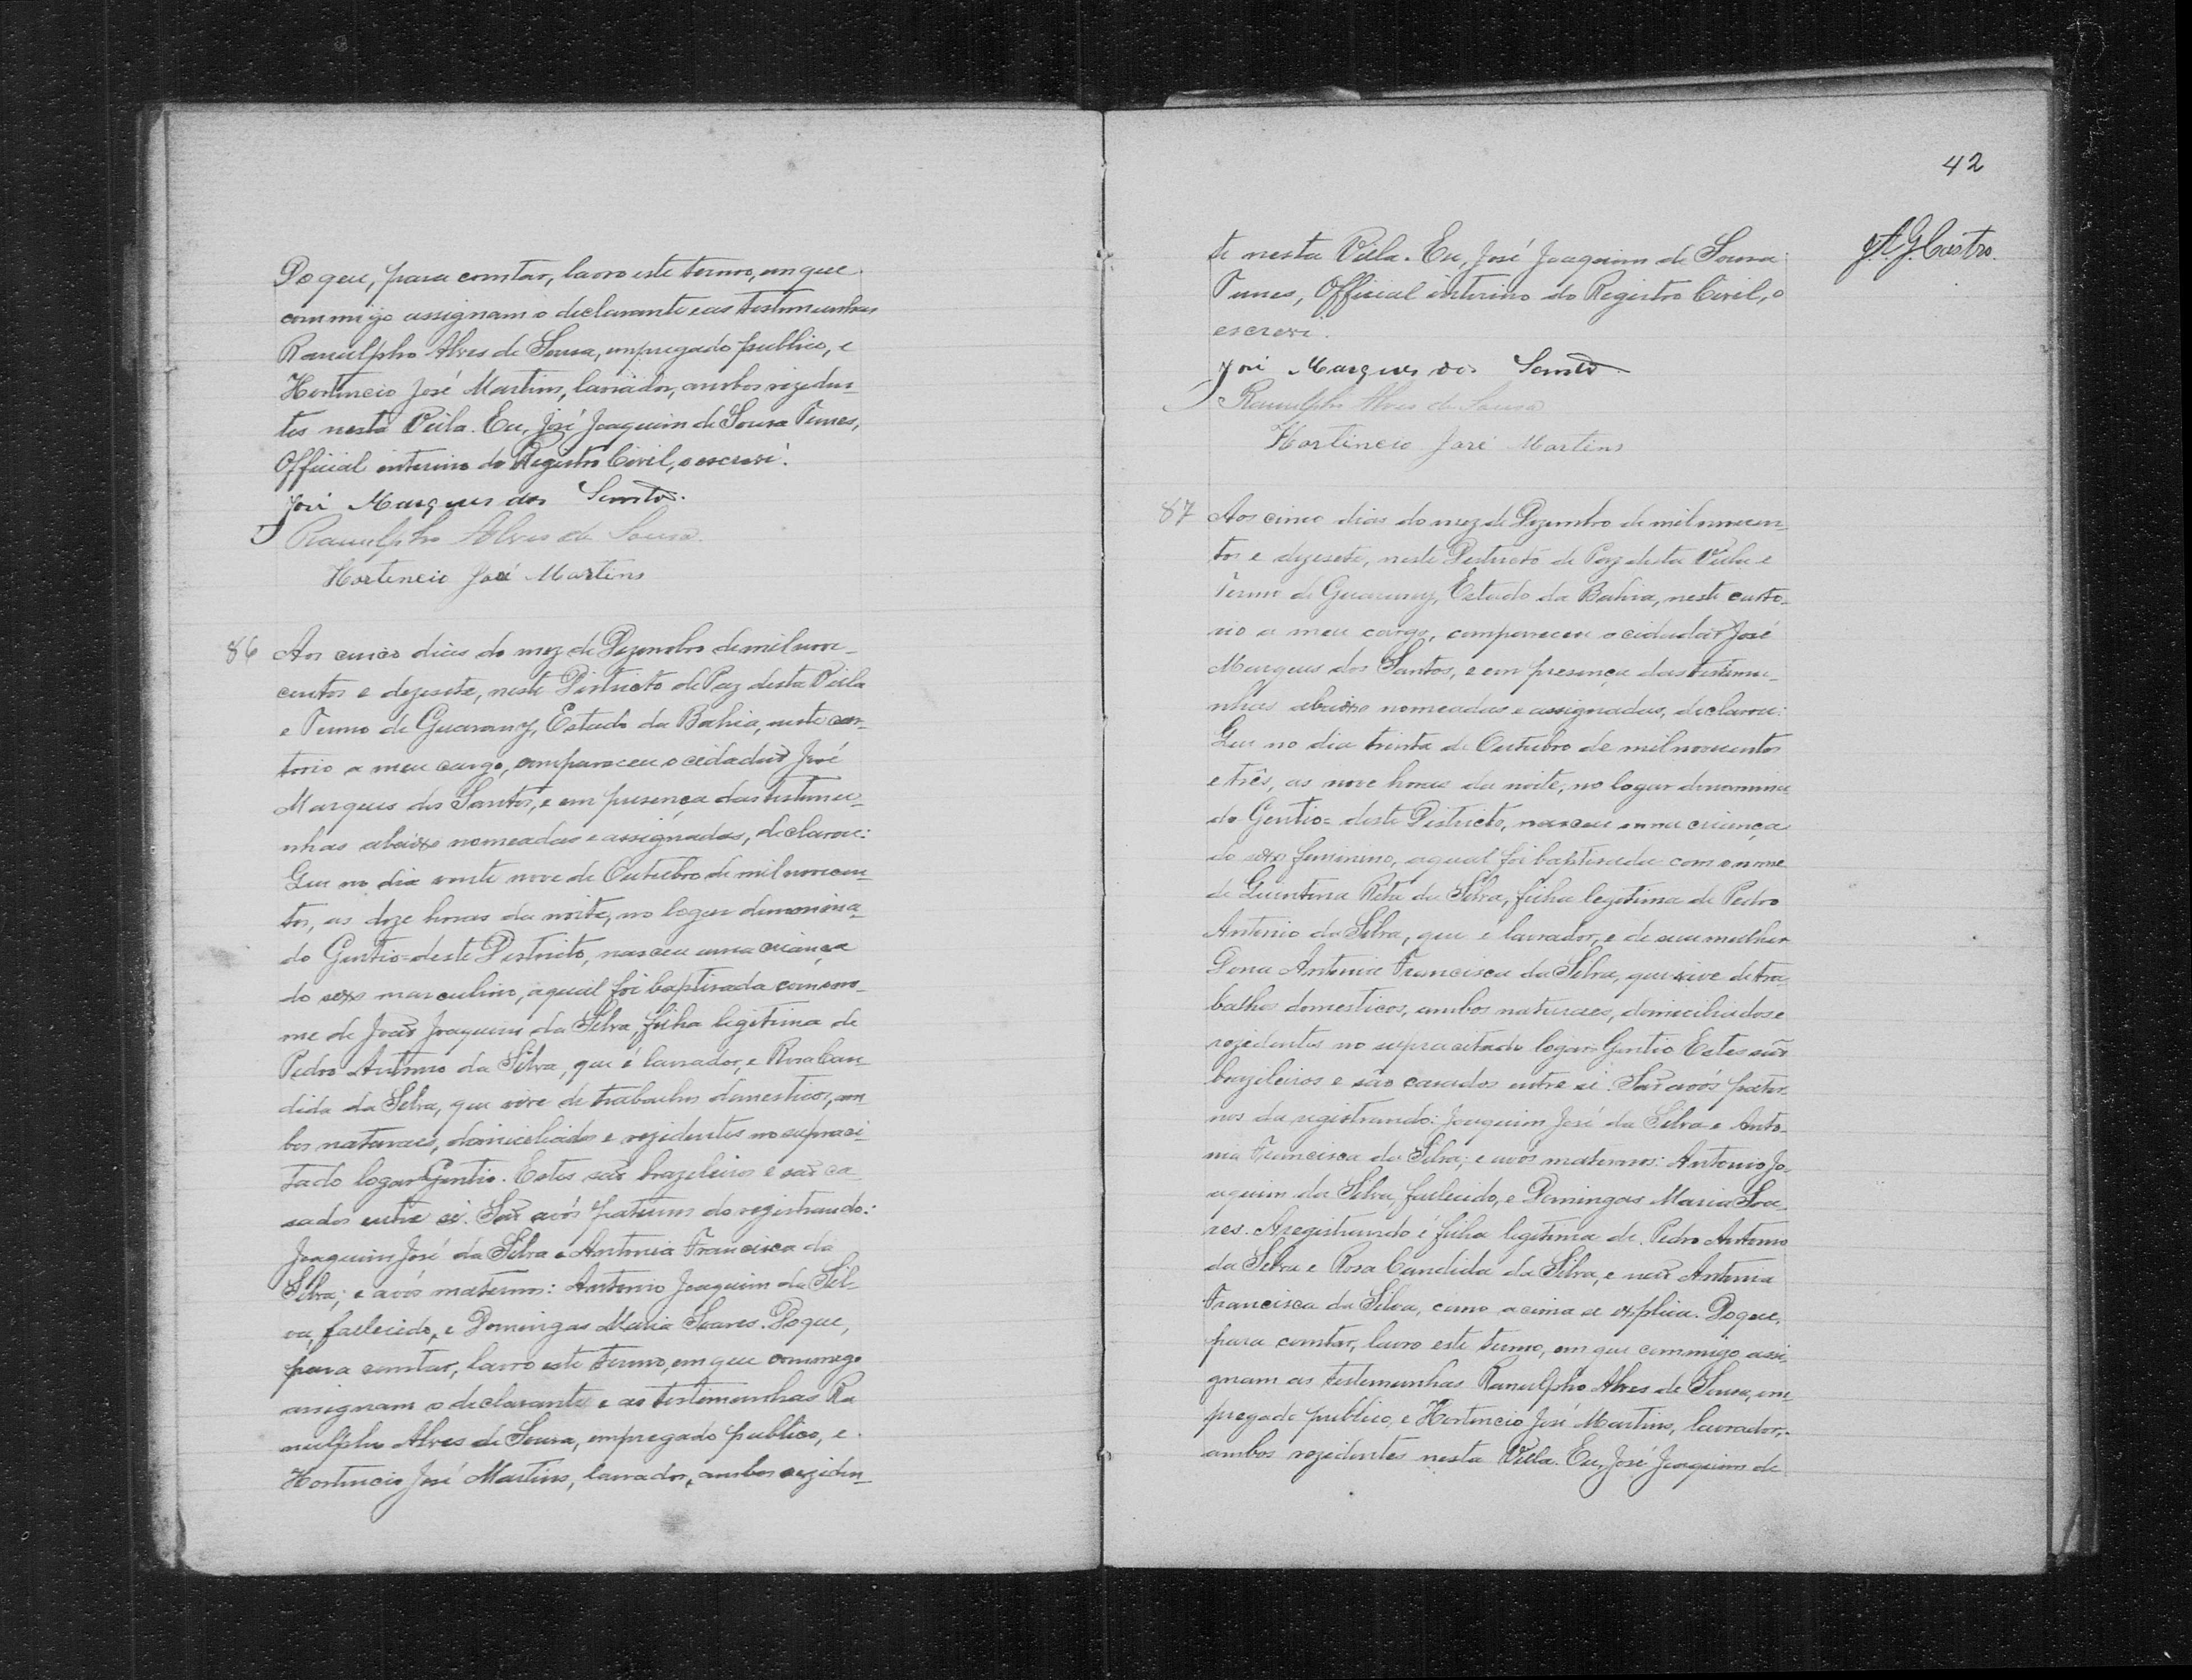 Do que, para constar, lavro este termo, em que
commigo assignam o declarante e as testemunhas
Ranulpho Alves de Sousa, empregado publico, e
Hortencio José Martins, lavrador, ambos reziden-
tes nesta Villa. Eu, José Joaquim de Sousa Tunes,
Official interino do Registro Civil, o escrevi.
José Marques dos Santos.
Ranulpho Alves de Sousa.
Hortencio José Martins
86 Aos cinco dias do mez de Dezembro de mil nove-
centos e dezesete, neste Districto de Paz desta Villa
e Termo de Guarany, Estado da Bahia, neste car-
torio a meu cargo, compareceu o cidadão José
Marques dos Santos, e em presença das testemu-
nhas abaixo nomeadas e assignadas, declarou:
Que no dia vinte nove de Outubro de mil novecen-
tos, as doze horas da noite, no logar denomina-
do Gentio=deste Districto, nasceu uma criança
do sexo masculino, a qual foi baptisada com o no-
me de João Joaquim da Silva, filha legitima de
Pedro Antonio da Silva, que é lavrador, e Rosa Can-
dida da Silva, que vive de trabalhos domesticos, am-
bos naturaes, domiciliados e rezidentes no supraci-
tado logar Gentio. Estes são brazileiros e são ca-
sados entre si. São avós paternos do registrando:
Joaquim José da Silva e Antonia Francisca da
Silva; e avós maternos: Antonio Joaquim da Sil-
va, fallecido, e Domingas Maria Soares. Do que,
para constar, lavro este termo, em que commigo
assignam o declarante e as testemunhas Ra
nulpho Alves de Sousa, empregado publico, e
Hortencio José Martins, lavrador, ambos reziden-
42
te nesta Villa. Eu, José Joaquim de Sousa
Tunes, Official interino do Registro Civil, o
escrevi.
José Marques dos Santos
Ranulpho Alves de Sousa
Hortencio José Martins
87 Aos cinco dias do mez de Dezembro de mil novecen-
tos e dezesete, neste Districto de Paz desta Villa e
Termo de Guarany, Estado da Bahia, neste carto-
rio a meu cargo, compareceu o cidadão José
Marques dos Santos, e em presença das testemu-
nhas abaixo nomeadas e assignadas, declarou:
Que no dia trinta de Outubro de mil novecentos
e três, as nove horas da noite, no logar denomina-
do Gentio= deste Districto, nasceu uma criança
do sexo feminino, a qual foi baptisada com o nome
de Quintina Rita da Silva, filha legitima de Pedro
Antonio da Silva, que é lavrador, e de sua mulher
Dona Antonia Francisca da Silva, que vive de tra-
balhos domesticos, ambos naturaes, domiciliados e
rezidentes no supracitado logar Gentio. Estes são
brazileiros e são casados entre si. São avós pater-
nos da registrando: Joaquim José da Silva e Anto-
nia Francisca da Silva; e avós maternos: Antonio Jo-
aquim da Silva, fallecido, e Domingas Maria Soa-
res. A registrando é filha legitima de Pedro Antonio
da Silva e Rosa Candida da Silva, e não Antonia
Francisca da Silva, como acima se explica. Do que,
para constar, lavro este termo, em que commigo assi-
gnam as testemunhas Ranulpho Alves de Sousa, em-
pregado publico, e Hortencio José Martins, lavrador,
ambos rezidentes nesta Villa. Eu, José Joaquim de